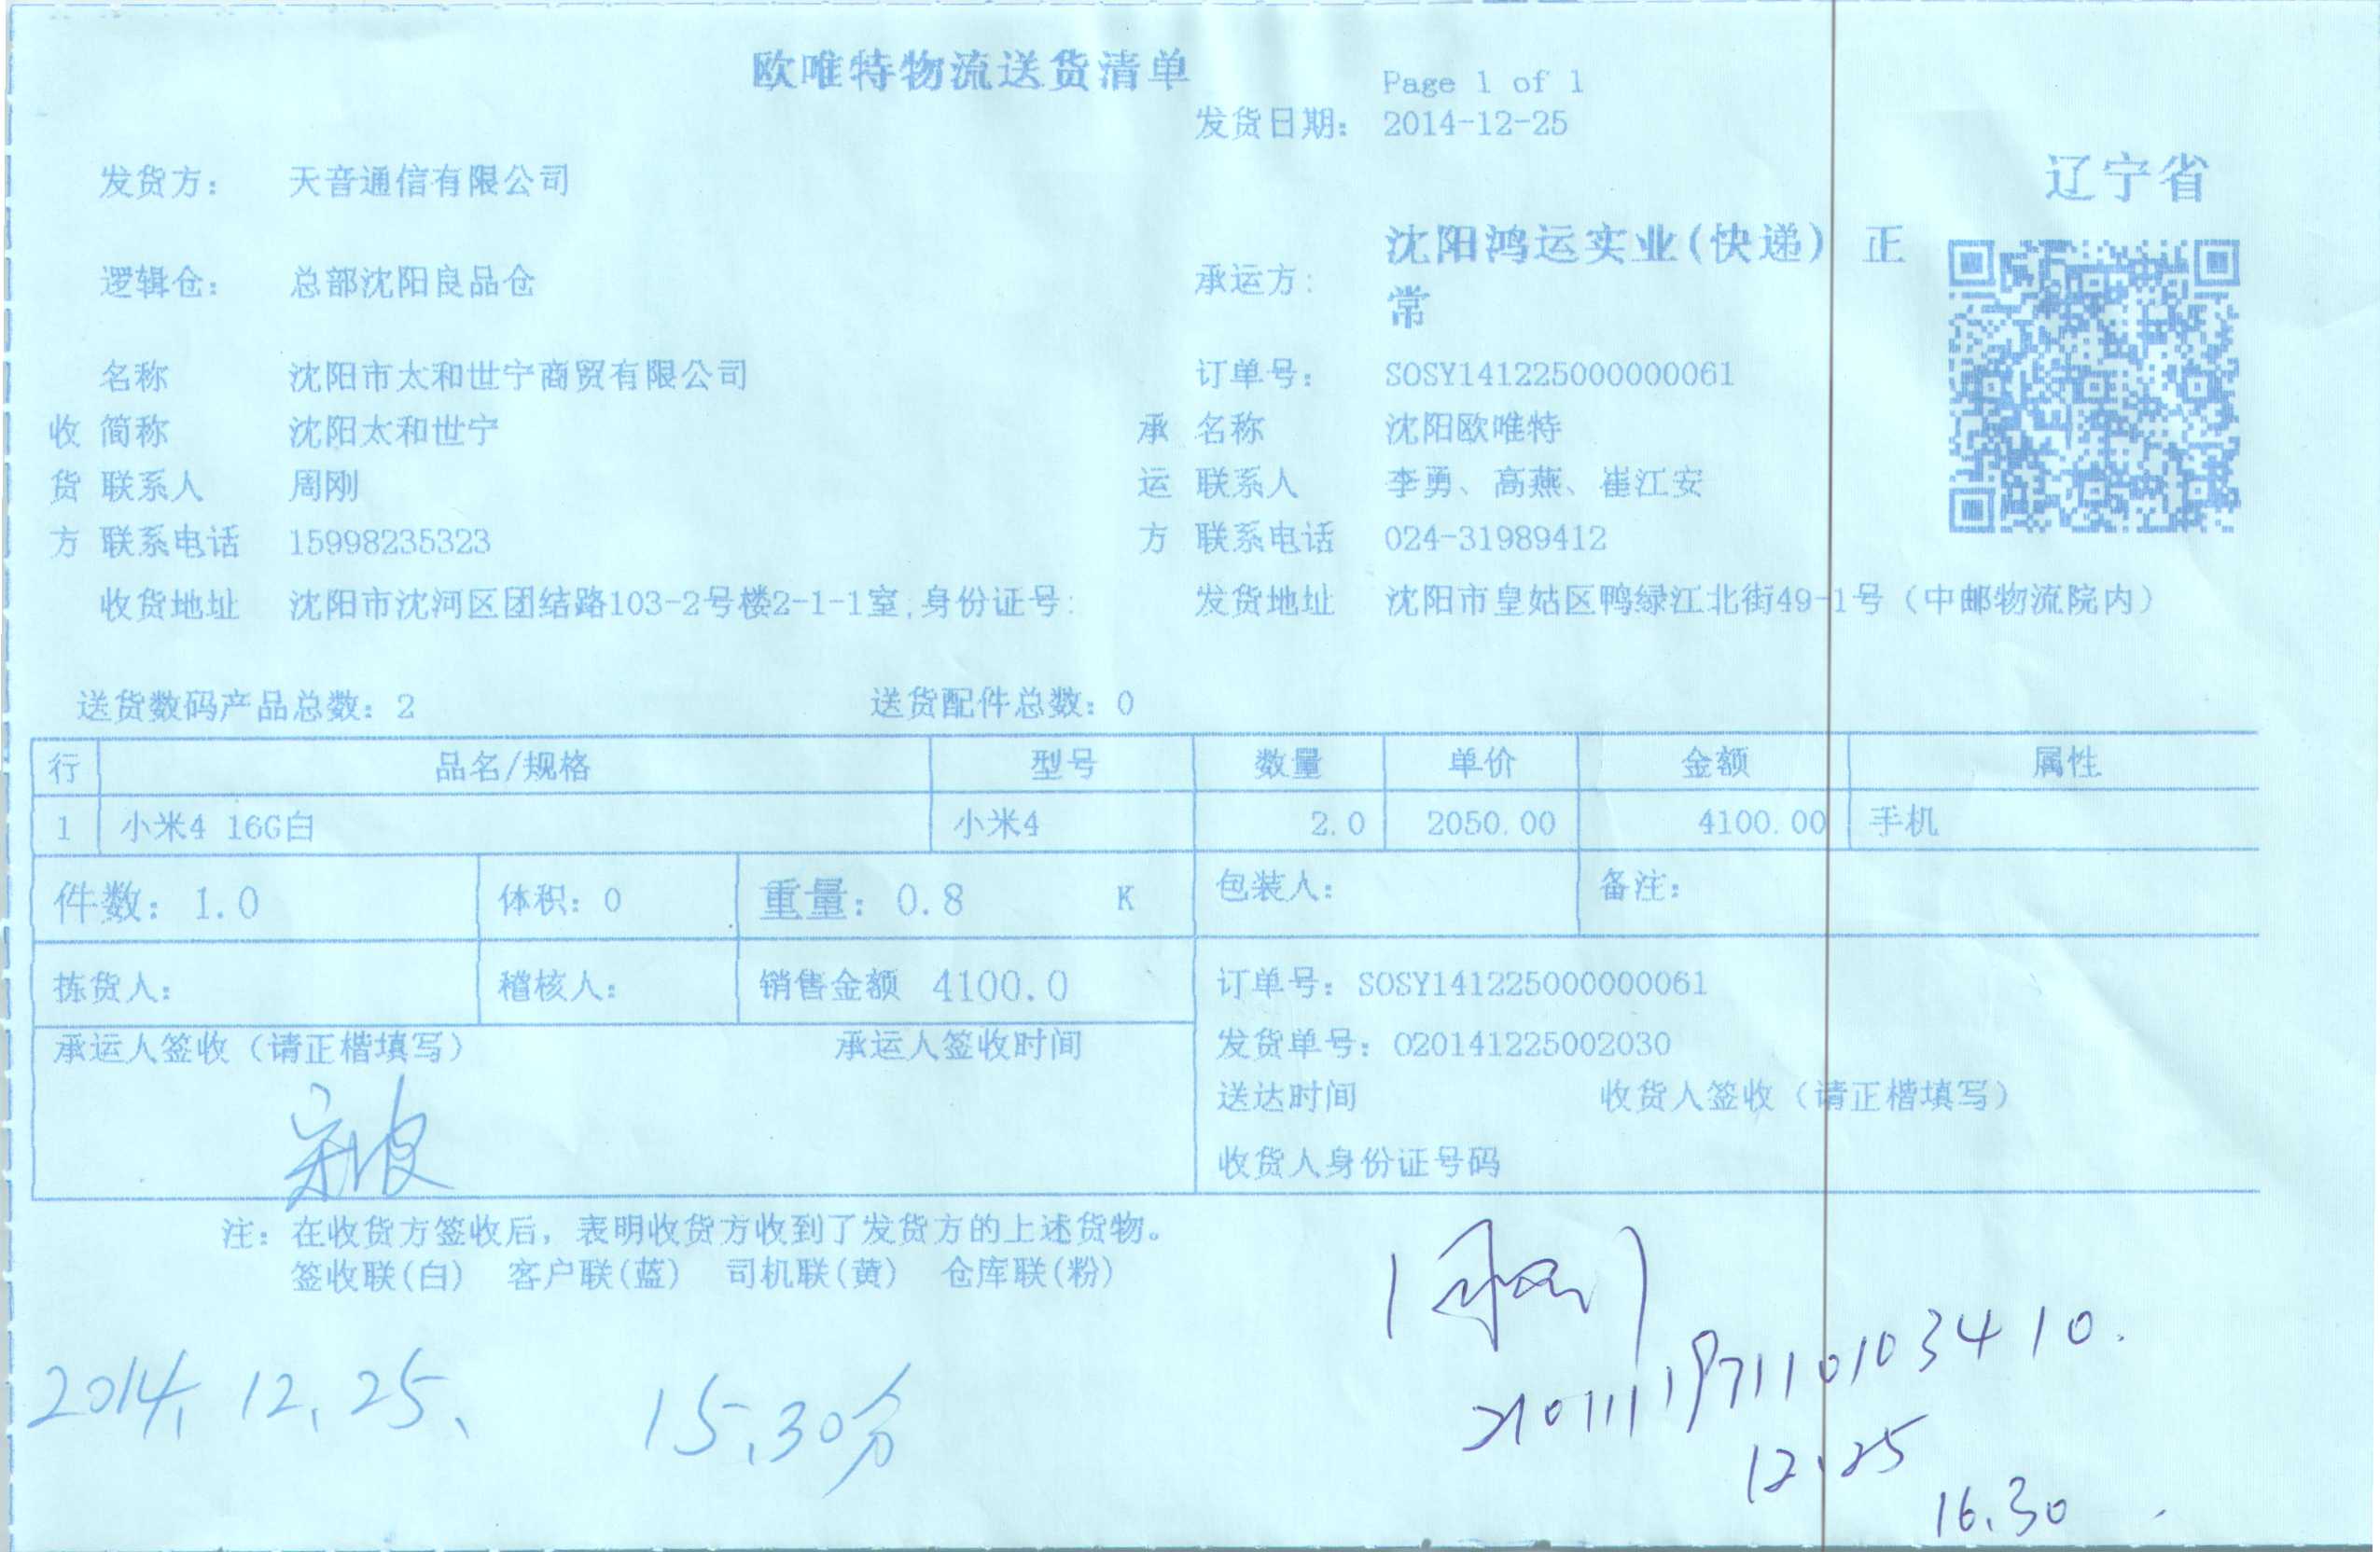 欧唯特物流送货清单
Page 1 of 1
发货日期: 2014-12-25
发货方: 天音通信有限公司
辽宁省
逻辑仓: 总部沈阳良品仓
承运方: 沈阳鸿运实业(快递) 正
常
名称 沈阳市太和世宁商贸有限公司
订单号: SOSY141225000000061
收 简称 沈阳太和世宁
承 名称 沈阳欧唯特
货 联系人 周刚
运 联系人 李勇、高燕、崔江安
方 联系电话 15998235323
方 联系电话 024-31989412
收货地址 沈阳市沈河区团结路103-2号楼2-1-1室,身份证号:
发货地址 沈阳市皇姑区鸭绿江北街49-1号（中邮物流院内）
送货数码产品总数: 2 送货配件总数: 0
行 品名/规格 型号 数量 单价 金额 属性
1 小米4 16G白 小米4 2.0 2050.00 4100.00 手机
件数: 1.0 体积: 0 重量: 0.8 K 包装人: 备注:
拣货人: 稽核人: 销售金额 4100.0
订单号: SOSY141225000000061
承运人签收（请正楷填写） 承运人签收时间
发货单号: 020141225002030
送达时间 收货人签收（请正楷填写）
收货人身份证号码
注: 在收货方签收后，表明收货方收到了发货方的上述货物。
签收联(白) 客户联(蓝) 司机联(黄) 仓库联(粉)
周刚
210111197110103410.
2014.12.25、 15.30分
12.25
16.30